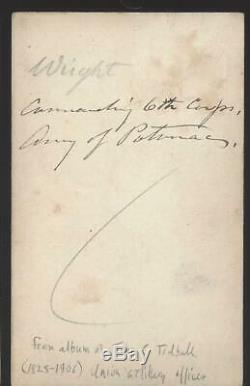 Wright
Commanding 6th Corps,
Army of Potomac,
From album of Jno. C. Tidball
(1825-1906) Union artillery officer